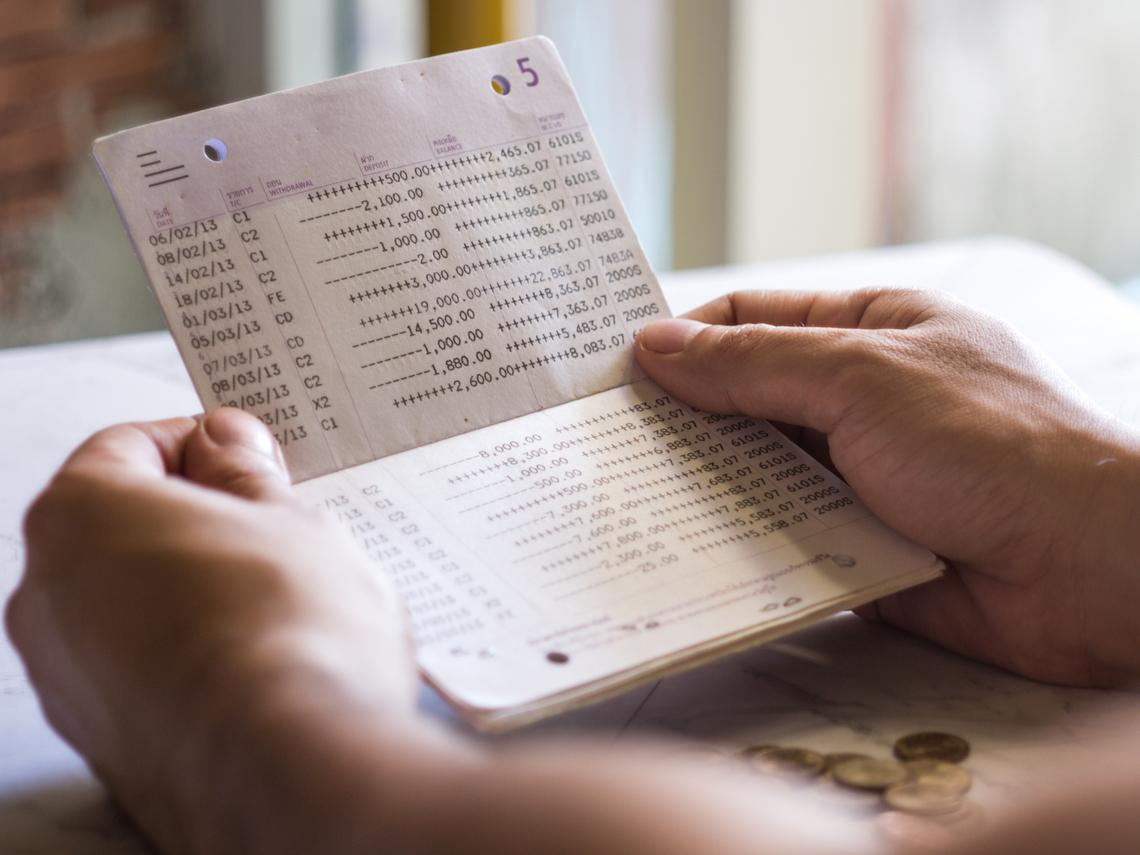 5
วันที่ รายการ ถอน ฝาก คงเหลือ
DATE T/C WITHDRAWAL DEPOSIT BALANCE
06/02/13 C1 ++++++++500.00++++++2,465.07 6101S
08/02/13 C2 --------2,100.00 ++++++++365.07 7715O
14/02/13 C1 ++++++1,500.00++++++1,865.07 6101S
18/02/13 C2 ------1,000.00 ++++++++865.07 7715O
01/03/13 FE ----------2.00 ++++++++863.07 50010
05/03/13 CD ++++++3,000.00++++++3,863.07 74B3B
07/03/13 CD ++++++19,000.00+++++22,863.07 74B3A
08/03/13 C2 -----14,500.00 ++++++8,363.07 2000S
/03/13 C2 ------1,000.00 ++++++7,363.07 2000S
/03/13 X2 ------1,880.00 ++++++5,483.07 2000S
/13 C1 ++++++2,600.00++++++8,083.07
/13 C2 ------8,000.00 ++++++++83.07
C1 ++++++8,300.00++++++8,383.07 2000S
C2 ------1,000.00 ++++++7,383.07 2000S
C2 --------500.00 ++++++6,883.07 2000S
C1 ++++++++500.00++++++7,383.07 6101S
C2 ------7,300.00 ++++++++83.07 2000S
C1 ++++++7,600.00++++++7,683.07 6101S
C2 ------7,600.00 ++++++++83.07 2000S
C1 ++++++7,800.00++++++7,883.07 6101S
X2 ------2,300.00 ++++++5,583.07 2000S
---------25.00 ++++++5,558.07 2000S